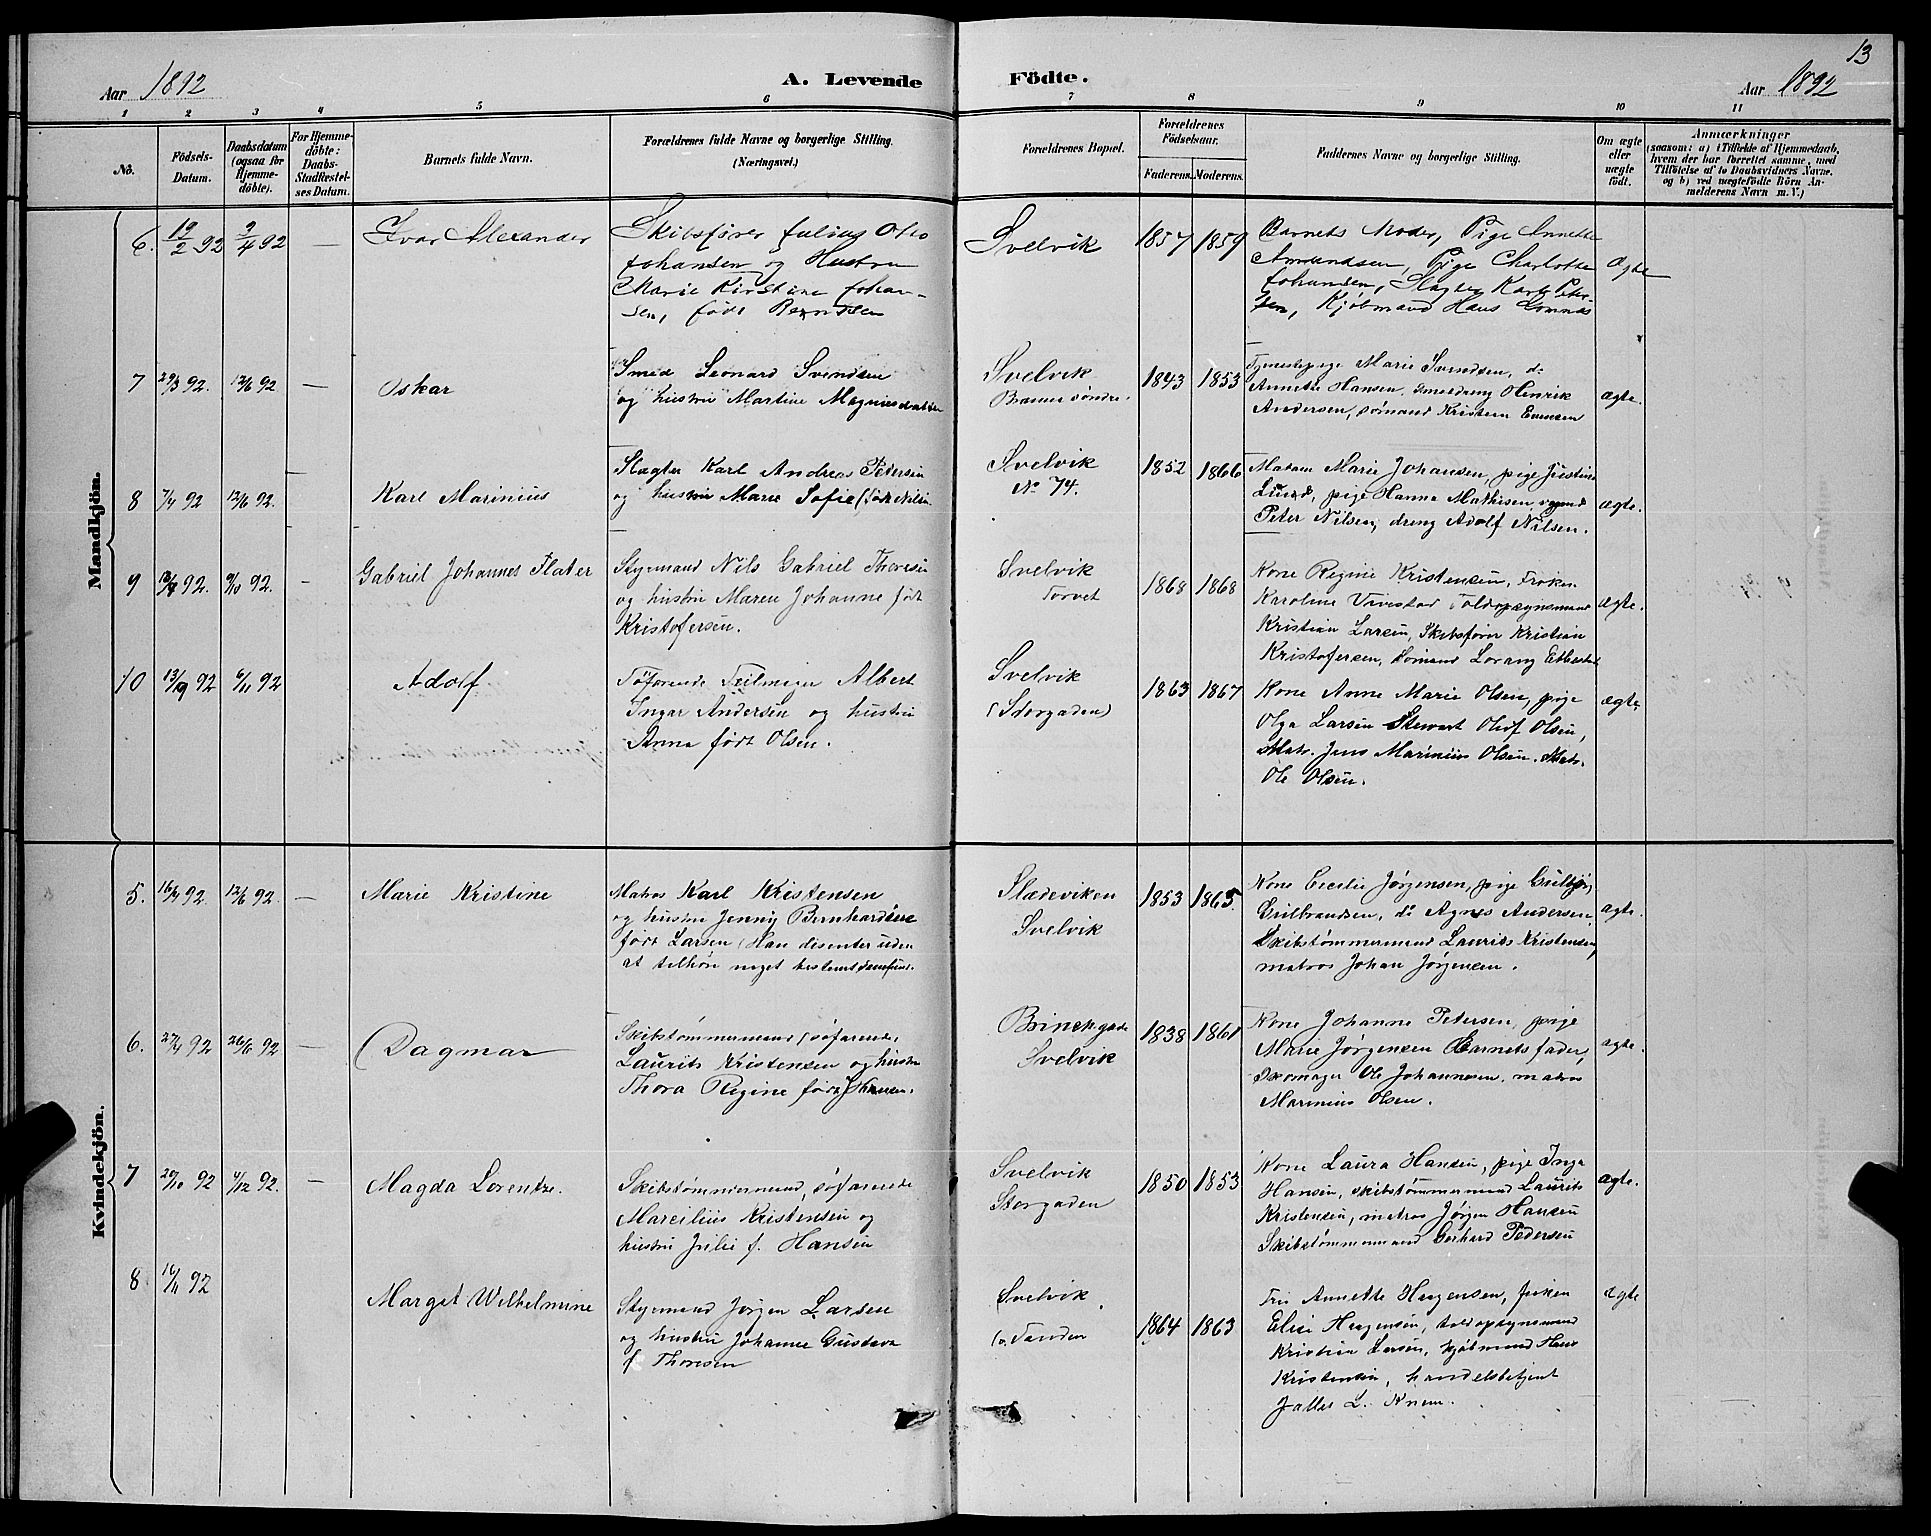 13
Aar 1892
A. Levende
Födte.
Aar 1892
1 2 3 4 5 6 7 8 9 10 11
No.
Födsels-Datum.
Daabsdatum (ogsaa for Hjemmedöbte).
For Hjemmedöbte: Daabs-Stadfæstelses Datum.
Barnets fulde Navn.
Forældrenes fulde Navne og borgerlige Stilling. (Næringsvei.)
Forældrenes Bopæl.
Forældrenes Födselsaar.
Faderens. Moderens.
Faddernes Navne og borgerlige Stilling.
Om ægte eller uægte födt.
Anmærkninger
(saasom: a) i Tilfælde af Hjemmedaab,
hvem der har forrettet samme, med
Tilföielse af to Daabsvidners Navne,
og b) ved uægtefödte Börn An-
melderens Navn m. V.)
Mandkjön.
6. 19/2 92 3/4 92 — Ivar Alexander
Skibsfører Julius Otto
Johansen og Hustru
Marie Kirstine Johan-
sen, født Berntsen
Svelvik
1857 1859
Barnets Moder, Pige Annette
Amundsen, Pige Charlotte
Johansen, Slagter Karl Peter-
sen, Kjøbmand Hans Lomnæs
Ægte
7 29/3 92. 12/6 92 — Oskar
Smed Leonard Svendsen
og hustru Martine Magnusdatter
Svelvik
søndre.
1843 1853
Tjenestepige Marie Svendsen, do
Annette Hansen, smeddreng Henrik
Andersen, sømand Kristian Evensen
ægte.
8 7/4 92 12/6 92. — Karl Marinius
Slagter Karl Andreas Pedersen
og hustru Marie Sofie (født Nilsen
Svelvik
No 74.
1852 1866
Madam Marie Johansen, pige Justine
Lund, pige Hanna Mathisen,
Peter Nilsen, dreng Adolf Nilsen.
ægte.
9 92. 9/10 92. — Gabriel Johannes Flater
Styrmand Nils Gabriel Thoresen
og hustru Maren Johanne født
Kristofersen.
Svelvik
Torvet
1868 1868
Kone Regine Kristensen, Frøken
Karoline Vivestad Toldopsynsmand
Kristian Larsen, Skibsfører Kristian
Kristofersen, Sømand Lorang
ægte.
10 13/9 92 6/11 92 Adolf
Søfarende Seilmager Albert
Ingar Andersen og hustru
Anna født Olsen.
Svelvik
(Storgaden)
1863 1867
Kone Anne Marie Olsen, pige
Olga Larsen Stewart Olof Olsen,
Matr. Jens Marinius Olsen. Matr.
Ole Olsen.
ægte.
Kvindekjön.
5. 16/4 92. 12/6 92. — Marie Kristine
Matros Karl Kristensen
og hustru Jenny Bernhardine
født Larsen (Han disenter uden
at tilhøre noget bestemt samfund.
Sladeviken
Svelvik
1853 1865
Kone Cecilie Jørgensen, pige Gulbjør,
Gulbrandsen, do Agnes Andersen,
Skibstømmermand Laurits Kristensen,
matros Johan Jørgensen.
ægte.
6. 27/4 92 26/6 92 — Dagmar
Skibstømmermand (søfarende)
Laurits Kristensen og hustru
Thora Regine født Johansen.
Brinchgade
Svelvik
1838 1861
Kone Johanne Petersen, pige
Marie Jørgensen Barnets fader,
Skomager Ole Johannesen, matros
Marinius Olsen.
ægte.
7 20/10 92 4/12 92. — Magda Lorentze.
Skibstømmermand, søfarende
Marcilius Kristensen og
hustru Julie f. Hansen
Svelvik
Storgaden
1850 1853
Kone Laura Hansen, pige Inga
Hansen, skibstømmermand Laurits
Kristensen, matros Jørgen Hansen
Skibstømmermand Gerhard Pedersen
ægte.
8 16/11 92 Margit Wilhelmine
Styrmand Jørgen Larsen
og hustru Johanne Gustava
f Thoresen
Svelvik
1864 1863
Fru Annette Hagensen, frøken
Elise Hagensen, toldopsynsmand
Kristian Larsen, kjøbmand Hans
Kristensen, handelsbetjent
L.
ægte